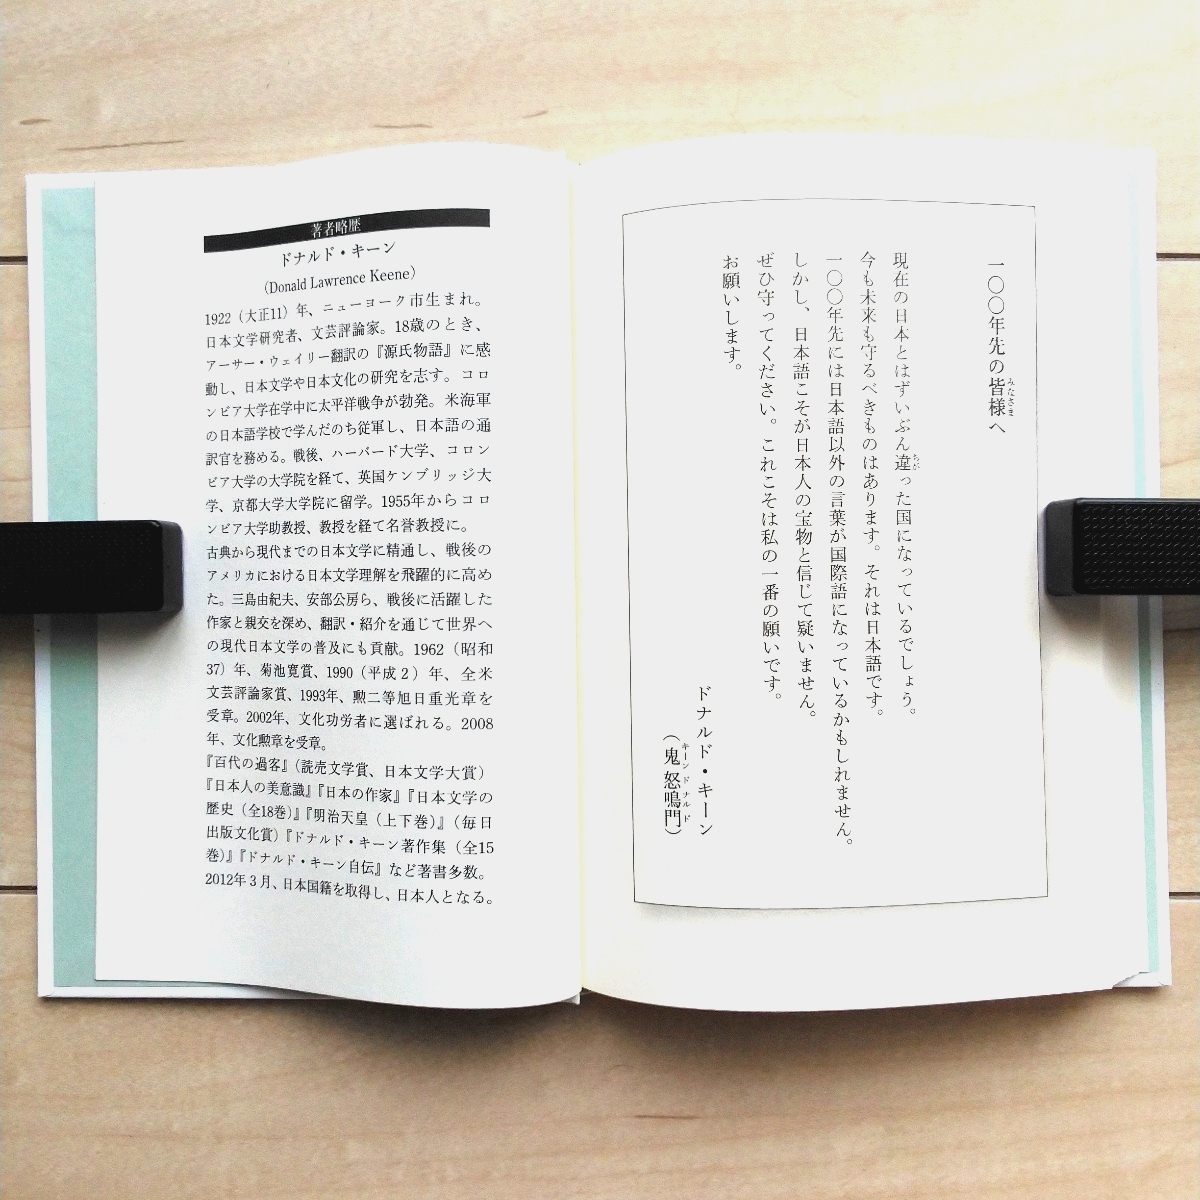 一〇〇年先の皆様へ
現在の日本とはずいぶん違った国になっているでしょう。
今も未来も守るべきものはあります。それは日本語です。
一〇〇年先には日本語以外の言葉が国際語になっているかもしれません。
しかし、日本語こそが日本人の宝物と信じて疑いません。
ぜひ守ってください。これこそは私の一番の願いです。
お願いします。
ドナルド・キーン
（鬼怒鳴門）
著者略歴
ドナルド・キーン
（Donald Lawrence Keene）
1922（大正11）年、ニューヨーク市生まれ。
日本文学研究者、文芸評論家。18歳のとき、
アーサー・ウェイリー翻訳の『源氏物語』に感
動し、日本文学や日本文化の研究を志す。コロ
ンビア大学在学中に太平洋戦争が勃発。米海軍
の日本語学校で学んだのち従軍し、日本語の通
訳官を務める。戦後、ハーバード大学、コロン
ビア大学の大学院を経て、英国ケンブリッジ大
学、京都大学大学院に留学。1955年からコロ
ンビア大学助教授、教授を経て名誉教授に。
古典から現代までの日本文学に精通し、戦後の
アメリカにおける日本文学理解を飛躍的に高め
た。三島由紀夫、安部公房ら、戦後に活躍した
作家と親交を深め、翻訳・紹介を通じて世界へ
の現代日本文学の普及にも貢献。1962（昭和
37）年、菊池寛賞、1990（平成2）年、全米
文芸評論家賞、1993年、勲二等旭日重光章を
受章。2002年、文化功労者に選ばれる。2008
年、文化勲章を受章。
『百代の過客』（読売文学賞、日本文学大賞）
『日本人の美意識』『日本の作家』『日本文学の
歴史（全18巻）』『明治天皇（上下巻）』（毎日
出版文化賞）『ドナルド・キーン著作集（全15
巻）』『ドナルド・キーン自伝』など著書多数。
2012年3月、日本国籍を取得し、日本人となる。